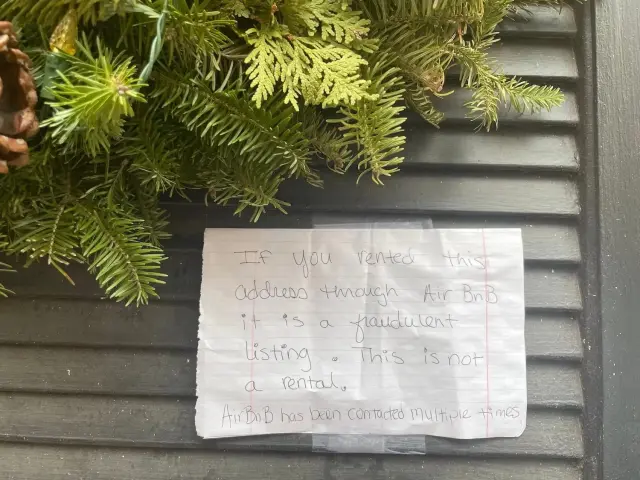 If you rented this
address through Air BnB
it is a fraudulent
listing. This is not
a rental.
AirBnB has been contacted multiple times